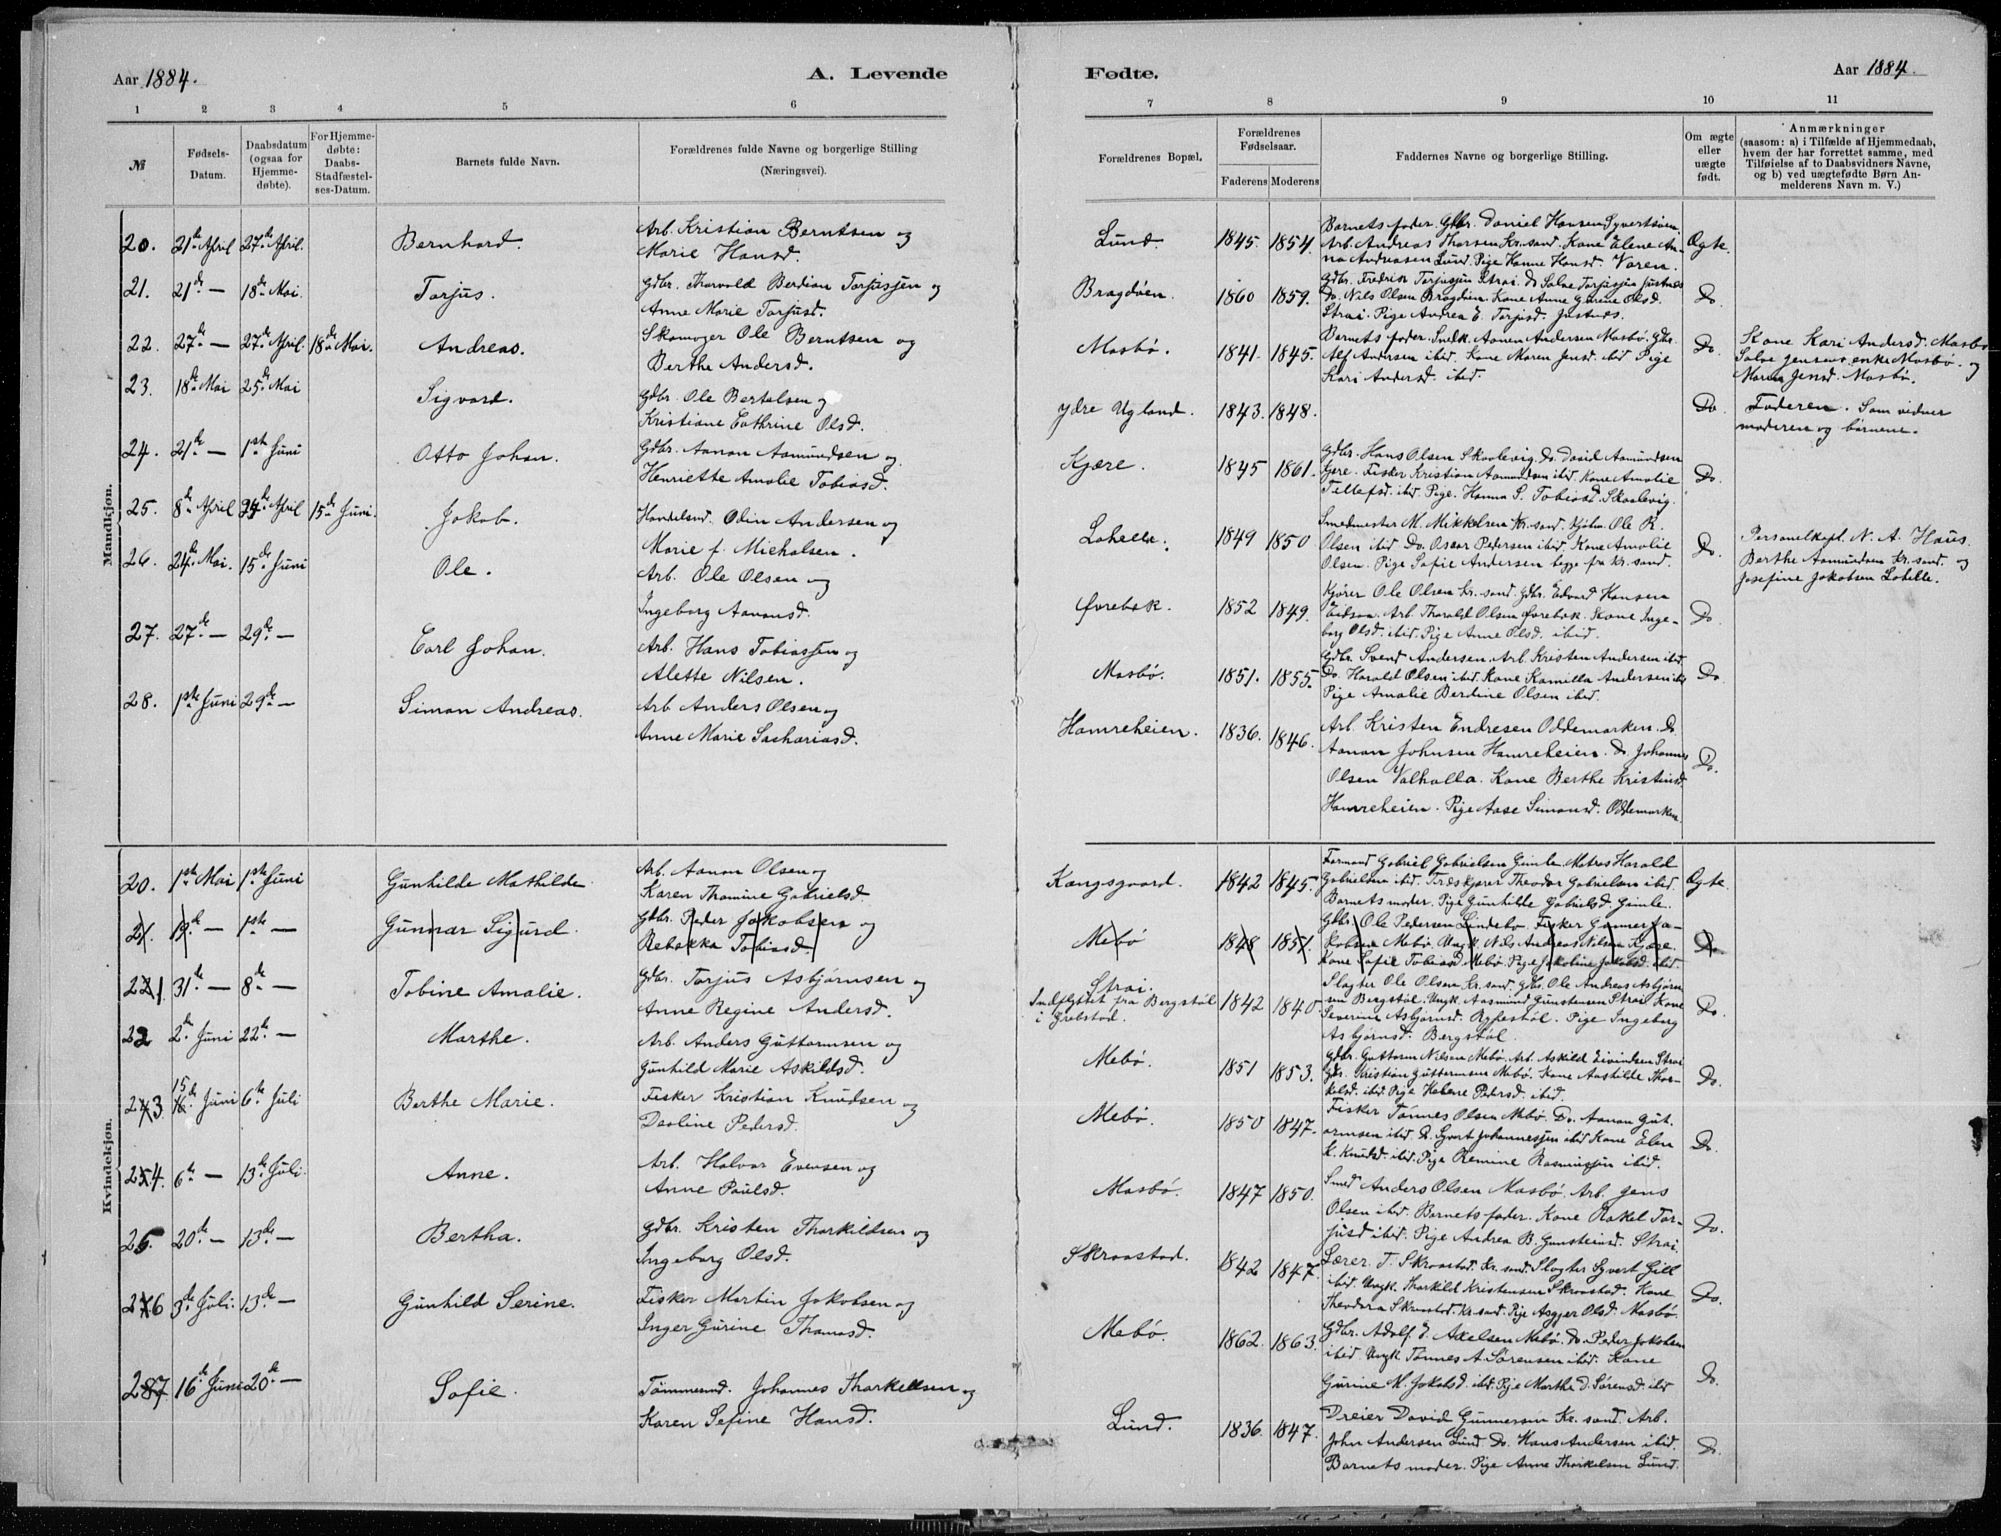 Aar 1884.
A. Levende
1 2 3 4 5 6
№
Fødsels-Datum.
Daabsdatum (ogsaa for Hjemmedøbte).
For Hjemmedøbte: Daabs-Stadfæstelses-Datum.
Barnets fulde Navn.
Forældrenes fulde Navne og borgerlige Stilling
(Næringsvei).
Mandkjøn.
20. 21de April 27de April. Bernhard. Arb. Kristian Berntsen og
Marie Hansd.
21. 21de — 18de Mai. Torjus. Gdbr. Thorvald Berdian Torjussen og
Anne Marie Torjusd.
22. 27de — 27de April. 18de Mai. Andreas. Skomager Ole Berntsen og
Berthe Andersd.
23. 18de Mai 25de Mai Sigvard. Gdbr. Ole Bertelsen og
Kristiane Cathrine Olsd.
24. 21de — 1ste Juni Otto Johan. Gdbr. Aanon Aamundsen og
Henriette Amalie Tobiasd.
25. 8de April 24de April 15de Juni. Jakob. Handelsmd. Odin Andersen og
Marie f. Michalsen.
26. 24de Mai. 15de Juni Ole. Arb. Ole Olsen og
Ingeborg Aanonsd.
27. 27de — 29de — Carl Johan. Arb. Hans Tobiassen og
Alette Nilsen.
28. 1ste Juni 29de — Simon Andreas. Arb. Anders Olsen og
Anne Marie Sachariasd.
Kvindekjøn.
20. 1ste Mai 1ste Juni Gunhilde Mathilde. Arb. Aanon Olsen og
Karen Thomine Gabrielsd.
21. 19de — 1ste — Gunnar Sigurd. Gdbr. Peder Jakobsen og
Rebekka Tobiasd.
221 31de — 8de — Tobine Amalie. Gdbr. Torjus Asbjørnsen og
Anne Regine Andersd.
22 2de Juni 22de — Marthe. Arb. Anders Guttormsen og
Gunhild Marie Askildsd.
243 15de Juni 6te Juli Berthe Marie. Fisker Kristian Knudsen og
Daoline Pedersd.
254. 6te — 13de Juli. Anne. Arb. Halvor Evensen og
Anne Paulsd.
25. 20de — 13de — Bertha. Gdbr. Kristen Thorkildsen og
Ingeborg Olsd.
276 3de Juli. 13de — Gunhild Serine. Fisker Martin Jakobsen og
Inger Gurine Thomasd.
287 16de Juni 20de — Sofie. Tømmermd. Johannes Thorkellsen og
Karen Sefine Hansd.
Fødte.
Aar 1884.
7 8 9 10 11
Forældrenes Bopæl.
Forældrenes Fødselsaar.
Faderens Moderens
Faddernes Navne og borgerlige Stilling.
Om ægte eller uægte født.
Anmærkninger
(saasom: a) i Tilfælde af Hjemmedaab,
hvem der har forrettet samme, med
Tilføielse af to Daabsvidners Navne,
og b) ved uægtefødte Børn An-
melderens Navn m. V.)
Lund. 1845. 1854. Barnets fader. Gdbr. Daniel Hansen Syvertsøen.
Arb. Andreas Thorsen Kr.sand. Kone Elene An-
na Andreasen Lund. Pige Hanne Hansd. Voren. Ægte.
Bragdøen. 1860 1859. Gdbr. Fredrik Torjussen Strai. Do Salve Torjussen Justnes
Do. Nils Olsen Bragdøen. Kone Anne Gurine Olsd.
Strai. Pige Andrea E. Torjusd. Justnes. Do
Mosbø. 1841. 1845. Barnets fader. Smed. Aanen Andersen Mosbø. Gbr.
Alf Andersen ibid. Kone Maren Jensd. ibid Pige
Kari Andersd. ibid. Do. Kone Kari Andersd. Mosbø
Salve Jensens enke Mosbø. og
Maren Jensd. Mosbø.
Ydre Ugland. 1843. 1848. Do Faderen. Som vidner
moderen og børnene.
Kjære. 1845 1861. Gdbr. Hans Olsen Skaalevig. Do. David Aamundsen
Kjære. Fisker Kristian Aamundsen ibid. Kone Amalie
Tellefsd. ibid. Pige. Hanna S. Tobiasd. Skaalevig. Do.
Lohelle. 1849 1850 Smedmester M. Mikkelsen Kr.sand. Kjøbm. Ole K.
Olsen ibid Do. Oscar Pedersen ibid. Kone Amalie
Olsen. Pige Sofie Andersen begge fra Kr.sand. Do. Personelkapl. N. A. Haus.
Berthe Aamundsen Kr.sand. og
Josefine Jakobsen Lohelle.
Øvrebøk. 1852 1849. Kjører Ole Olsen Kr.sand. Gdbr. Edvard Hansen
Eidsaa. Arb. Thorald Olsen Øvrebøk. Kone Inge-
borg Olsd. ibid. Pige Anne Olsd. ibid. Do
Mosbø. 1851. 1855. Gdbr. Svend Andersen. Arb. Kristen Andersen ibid.
Do. Harald Olsen ibid. Kone Kamilla Andersen ibd.
Pige Amalie Berdine Olsen ibid. Do.
Hamreheien. 1836. 1846. Arb. Kristen Endresen Oddemarken. Do.
Aanon Johnsen Hamreheien. Do. Johannes
Olsen Valhalla. Kone Berthe Kristensd.
Hamreheien. Pige Aase Simonsd. Oddemarken. Do.
Kongsgaard. 1842 1845. Formand Gabriel Gabrielsen Gimle. Matros Harald
Gabrielsen ibid. Træskjærer Theodor Gabrielsen ibid.
Barnets moder. Pige Gunhilde Gabrielsd. Gimle. Ægte.
Mebø 1848 1851. Gdbr. Ole Pedersen Lindebø. Fisker Gunner Ja-
kobsen Mebø. Ungk. Nils Andreas Nilsen Kjære.
Kone Sofie Tobiasd. Mebø Pige Jakobine Jakobsd. ibid. Do.
Strai.
Indflyttet fra Bergstøl
i Grebstad. 1842 1840. Slagter Ole Olsen Kr.sand. Gdbr. Ole Andreas Asbjørn-
sen Bergstøl. Ungk. Aasmund Gunstensen Strai Kone
Severine Asbjørnsd. Rypestøl. Pige Ingeborg
Asbjørnsd. Bergstøl. Do.
Mebø. 1851 1853. Gdbr. Guttorm Nilsen Mebø. Arb. Askild Eivindsen Strai
Gdr. Kristian Guttormsen Mebø. Kone Aashilde Thor-
kelsd. ibid. Pige Helene Pedersd. ibid. Do.
Mebø. 1850 1847. Fisker Tønnes Olsen Mebø. Do. Aanon Gut-
ormsen ibid. Do. Syvert Johannessen ibid Kone Elen
K. Knudsd. ibid. Pige Remine Rasmussen ibid. Do.
Mosbø. 1847 1850. Smed Anders Olsen Mosbø. Arb. Jens
Olsen ibid. Barnets fader. Kone Rakel Tor-
jusd ibid. Pige Andrea B. Gunsteinsd. Strai. Do.
Skraastad. 1842 1847. Lærer T. Skraastad. Kr.sand. Slagter Syvert Gill
ibid. Ungk. Thorkild Kristensen Skraastad. Kone
Theodora Skraastad. Kr.sand. Pige Asgjer Olsd. Mosbø. Do.
Mebø. 1862. 1863. Gdbr. Adolf E. Axelsen Mebø. Do. Peder Jakobsen
ibid. Ungk. Tønnes A. Sørensen ibid. Kone
Gurine M. Jakobsd. ibid. Pige Marthe D. Sørensd. ibid Do.
Lund. 1836. 1847. Dreier David Gunnersen Kr.sand. Arb.
John Andersen Lund. Do. Hans Andersen ibid.
Barnets moder. Pige Anne Thorkelsen Lund. Do.